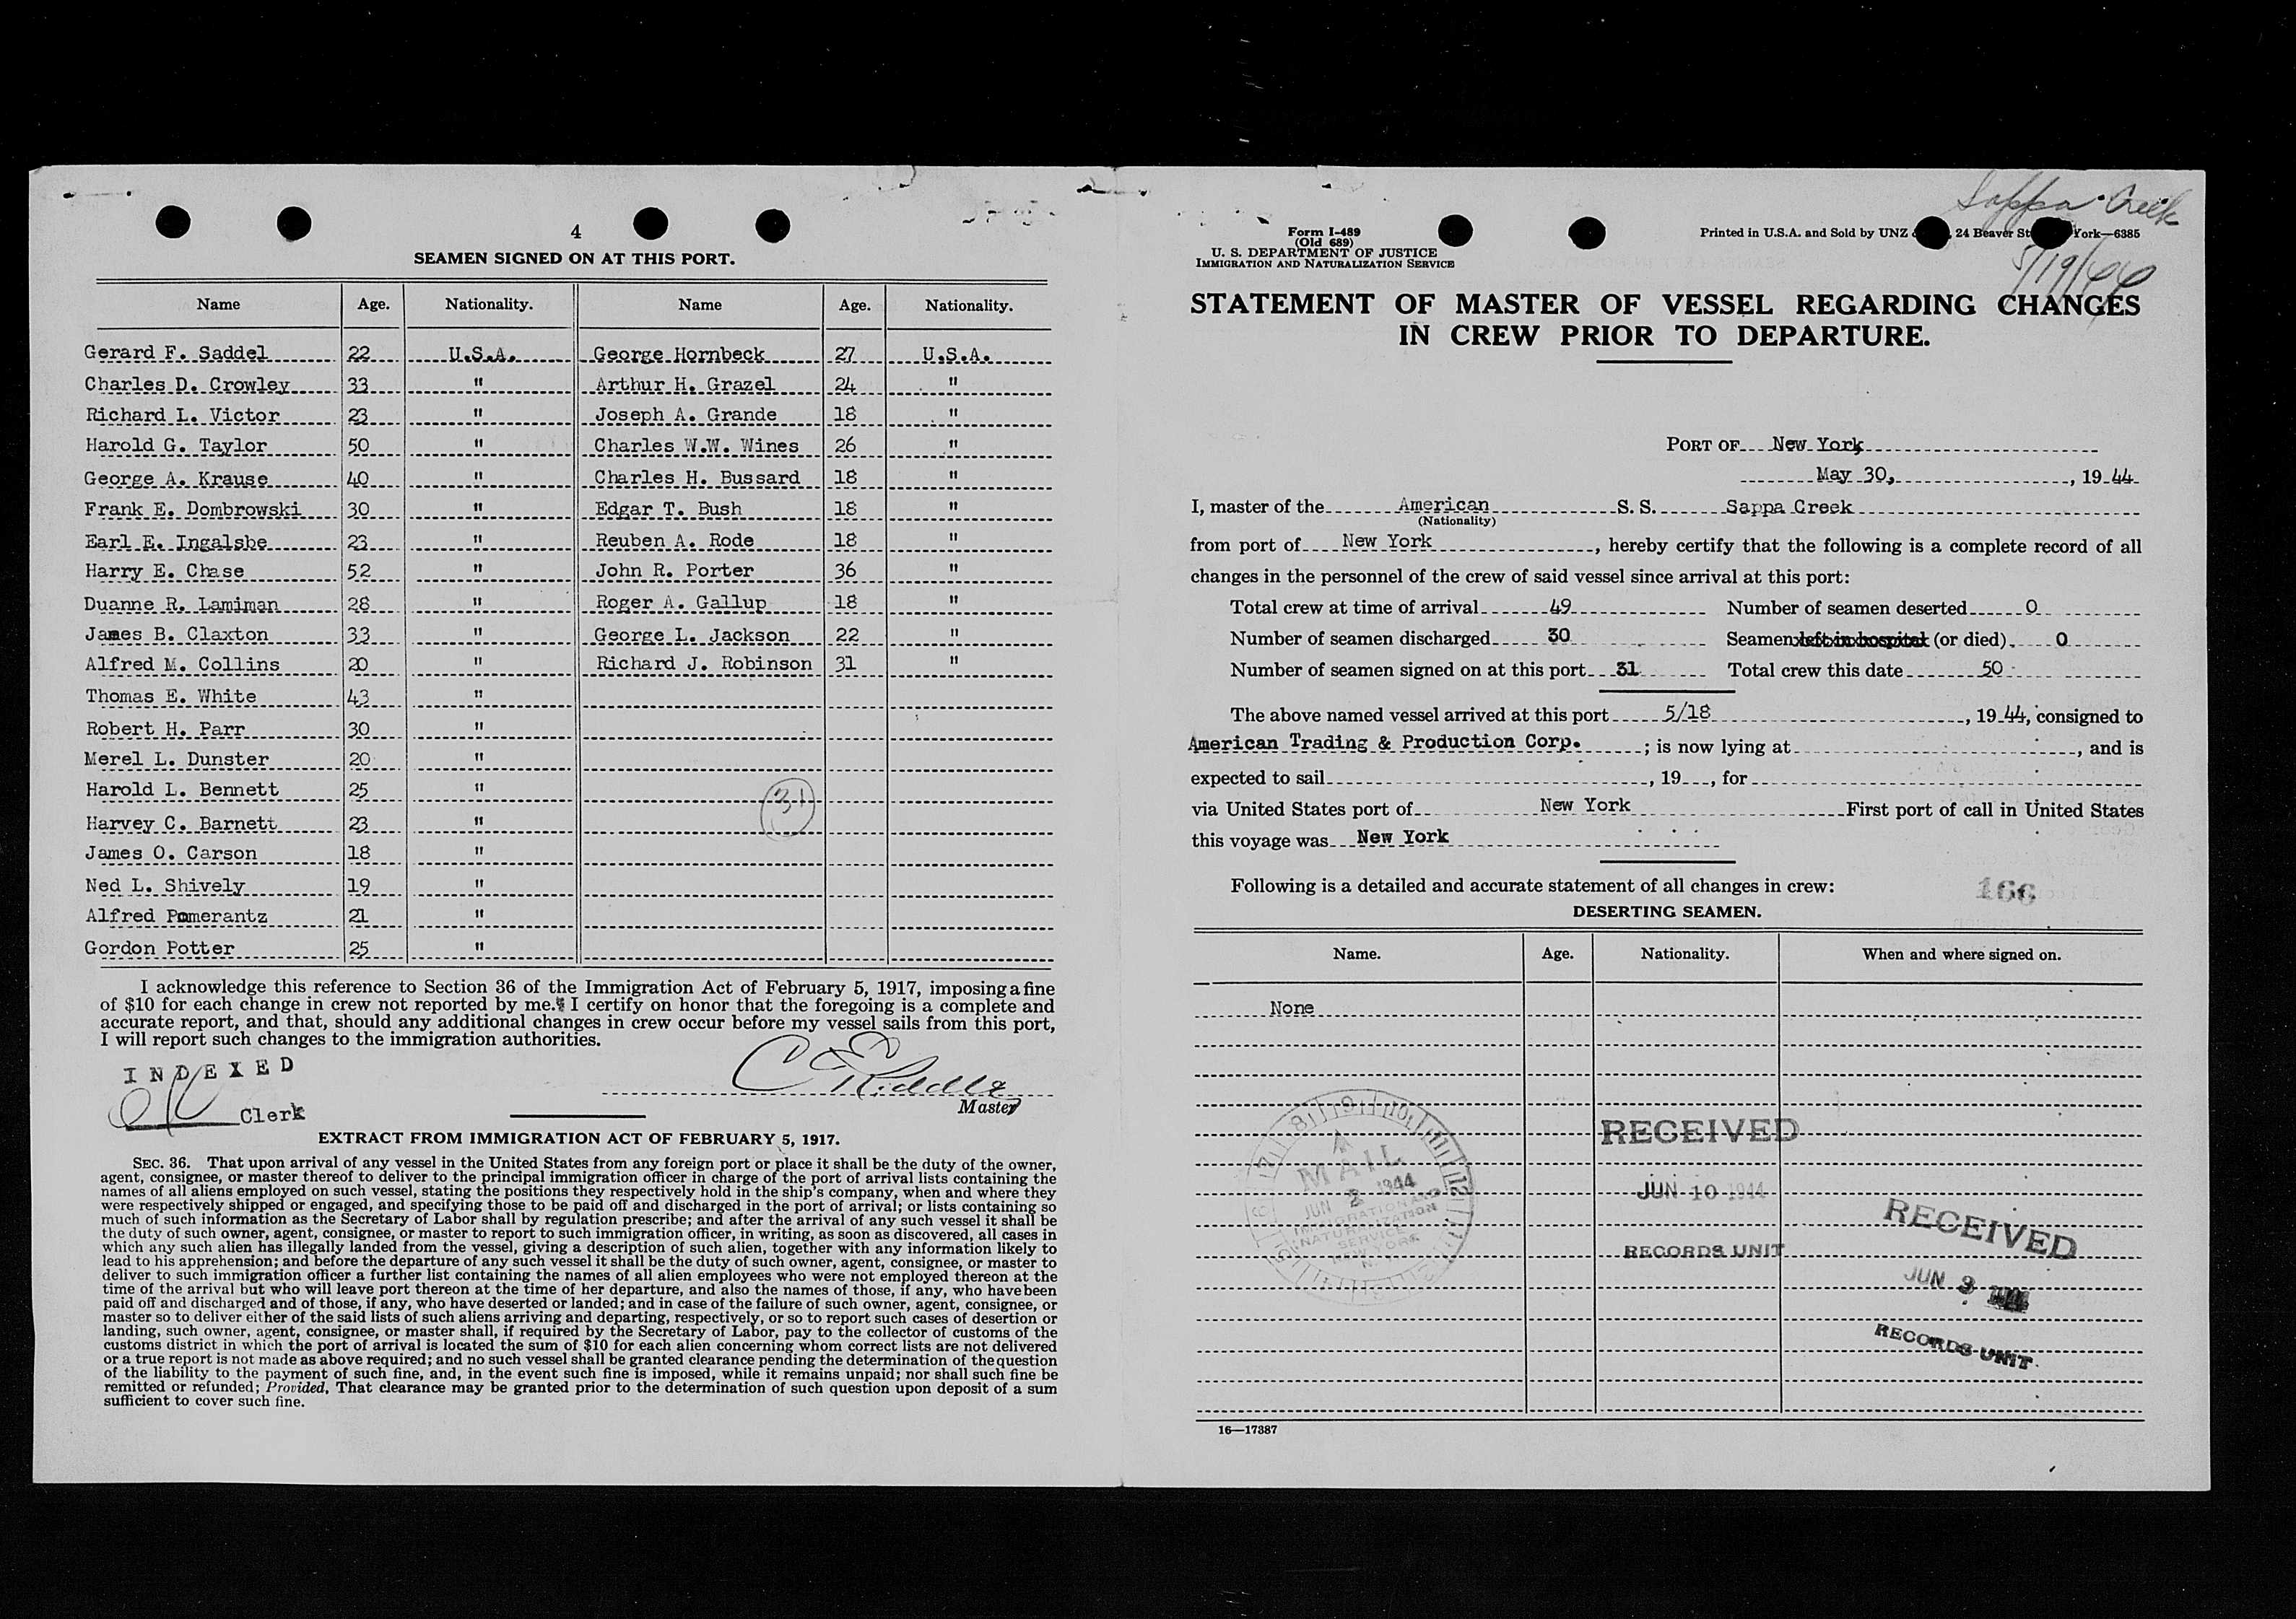 4
SEAMEN SIGNED ON AT THIS PORT.
Name Age. Nationality. Name Age. Nationality.
Gerard F. Saddel 22 U.S.A. George Hornbeck 27 U.S.A.
Charles D. Crowley 33 " Arthur H. Grazel 24 "
Richard L. Victor 23 " Joseph A. Grande 18 "
Harold G. Taylor 50 " Charles W.W. Wines 26 "
George A. Krause 40 " Charles H. Bussard 18 "
Frank E. Dombrowski 30 " Edgar T. Bush 18 "
Earl E. Ingalsbe 23 " Reuben A. Rode 18 "
Harry E. Chase 52 " John R. Porter 36 "
Duanne R. Lamiman 28 " Roger A. Gallup 18 "
James B. Claxton 33 " George L. Jackson 22 "
Alfred M. Collins 20 " Richard J. Robinson 31 "
Thomas E. White 43 "
Robert H. Parr 30 "
Merel L. Dunster 20 "
Harold L. Bennett 25 "
31
Harvey C. Barnett 23 "
James O. Carson 18 "
Ned L. Shively 19 "
Alfred Pomerantz 21 "
Gordon Potter 25 "
I acknowledge this reference to Section 36 of the Immigration Act of February 5, 1917, imposing a fine
of $10 for each change in crew not reported by me. I certify on honor that the foregoing is a complete and
accurate report, and that, should any additional changes in crew occur before my vessel sails from this port,
I will report such changes to the immigration authorities.
INDEXED
C E Riddle
Master
Clerk
EXTRACT FROM IMMIGRATION ACT OF FEBRUARY 5, 1917.
SEC. 36. That upon arrival of any vessel in the United States from any foreign port or place it shall be the duty of the owner,
agent, consignee, or master thereof to deliver to the principal immigration officer in charge of the port of arrival lists containing the
names of all aliens employed on such vessel, stating the positions they respectively hold in the ship's company, when and where they
were respectively shipped or engaged, and specifying those to be paid off and discharged in the port of arrival; or lists containing so
much of such information as the Secretary of Labor shall by regulation prescribe; and after the arrival of any such vessel it shall be
the duty of such owner, agent, consignee, or master to report to such immigration officer, in writing, as soon as discovered, all cases in
which any such alien has illegally landed from the vessel, giving a description of such alien, together with any information likely to
lead to his apprehension; and before the departure of any such vessel it shall be the duty of such owner, agent, consignee, or master to
deliver to such immigration officer a further list containing the names of all alien employees who were not employed thereon at the
time of the arrival but who will leave port thereon at the time of her departure, and also the names of those, if any, who have been
paid off and discharged and of those, if any, who have deserted or landed; and in case of the failure of such owner, agent, consignee, or
master so to deliver either of the said lists of such aliens arriving and departing, respectively, or so to report such cases of desertion or
landing, such owner, agent, consignee, or master shall, if required by the Secretary of Labor, pay to the collector of customs of the
customs district in which the port of arrival is located the sum of $10 for each alien concerning whom correct lists are not delivered
or a true report is not made as above required; and no such vessel shall be granted clearance pending the determination of the question
of the liability to the payment of such fine, and, in the event such fine is imposed, while it remains unpaid; nor shall such fine be
remitted or refunded; Provided, That clearance may be granted prior to the determination of such question upon deposit of a sum
sufficient to cover such fine.
Sappa Creek
5/19/44
Form I-489
(Old 689)
U. S. DEPARTMENT OF JUSTICE
IMMIGRATION AND NATURALIZATION SERVICE
Printed in U.S.A. and Sold by UNZ 24 Beaver St York—6385
STATEMENT OF MASTER OF VESSEL REGARDING CHANGES
IN CREW PRIOR TO DEPARTURE.
PORT OF New York,
May 30, , 19 44
I, master of the American S. S. Sappa Creek
(Nationality)
from port of New York , hereby certify that the following is a complete record of all
changes in the personnel of the crew of said vessel since arrival at this port:
Total crew at time of arrival 49 Number of seamen deserted 0
Number of seamen discharged 30 Seamen left in hospital (or died) 0
Number of seamen signed on at this port 31 Total crew this date 50
The above named vessel arrived at this port 5/18 , 19 44, consigned to
American Trading & Production Corp. ; is now lying at , and is
expected to sail , 19 , for
via United States port of New York First port of call in United States
this voyage was New York
Following is a detailed and accurate statement of all changes in crew:
166
DESERTING SEAMEN.
Name. Age. Nationality. When and where signed on.
None
MAIL
JUN 2 1944
IMMIGRATION AND
NATURALIZATION
SERVICE
NEW YORK
RECEIVED
JUN 10 1944
RECORDS UNIT
RECEIVED
JUN 3 1944
RECORDS UNIT
16—17387